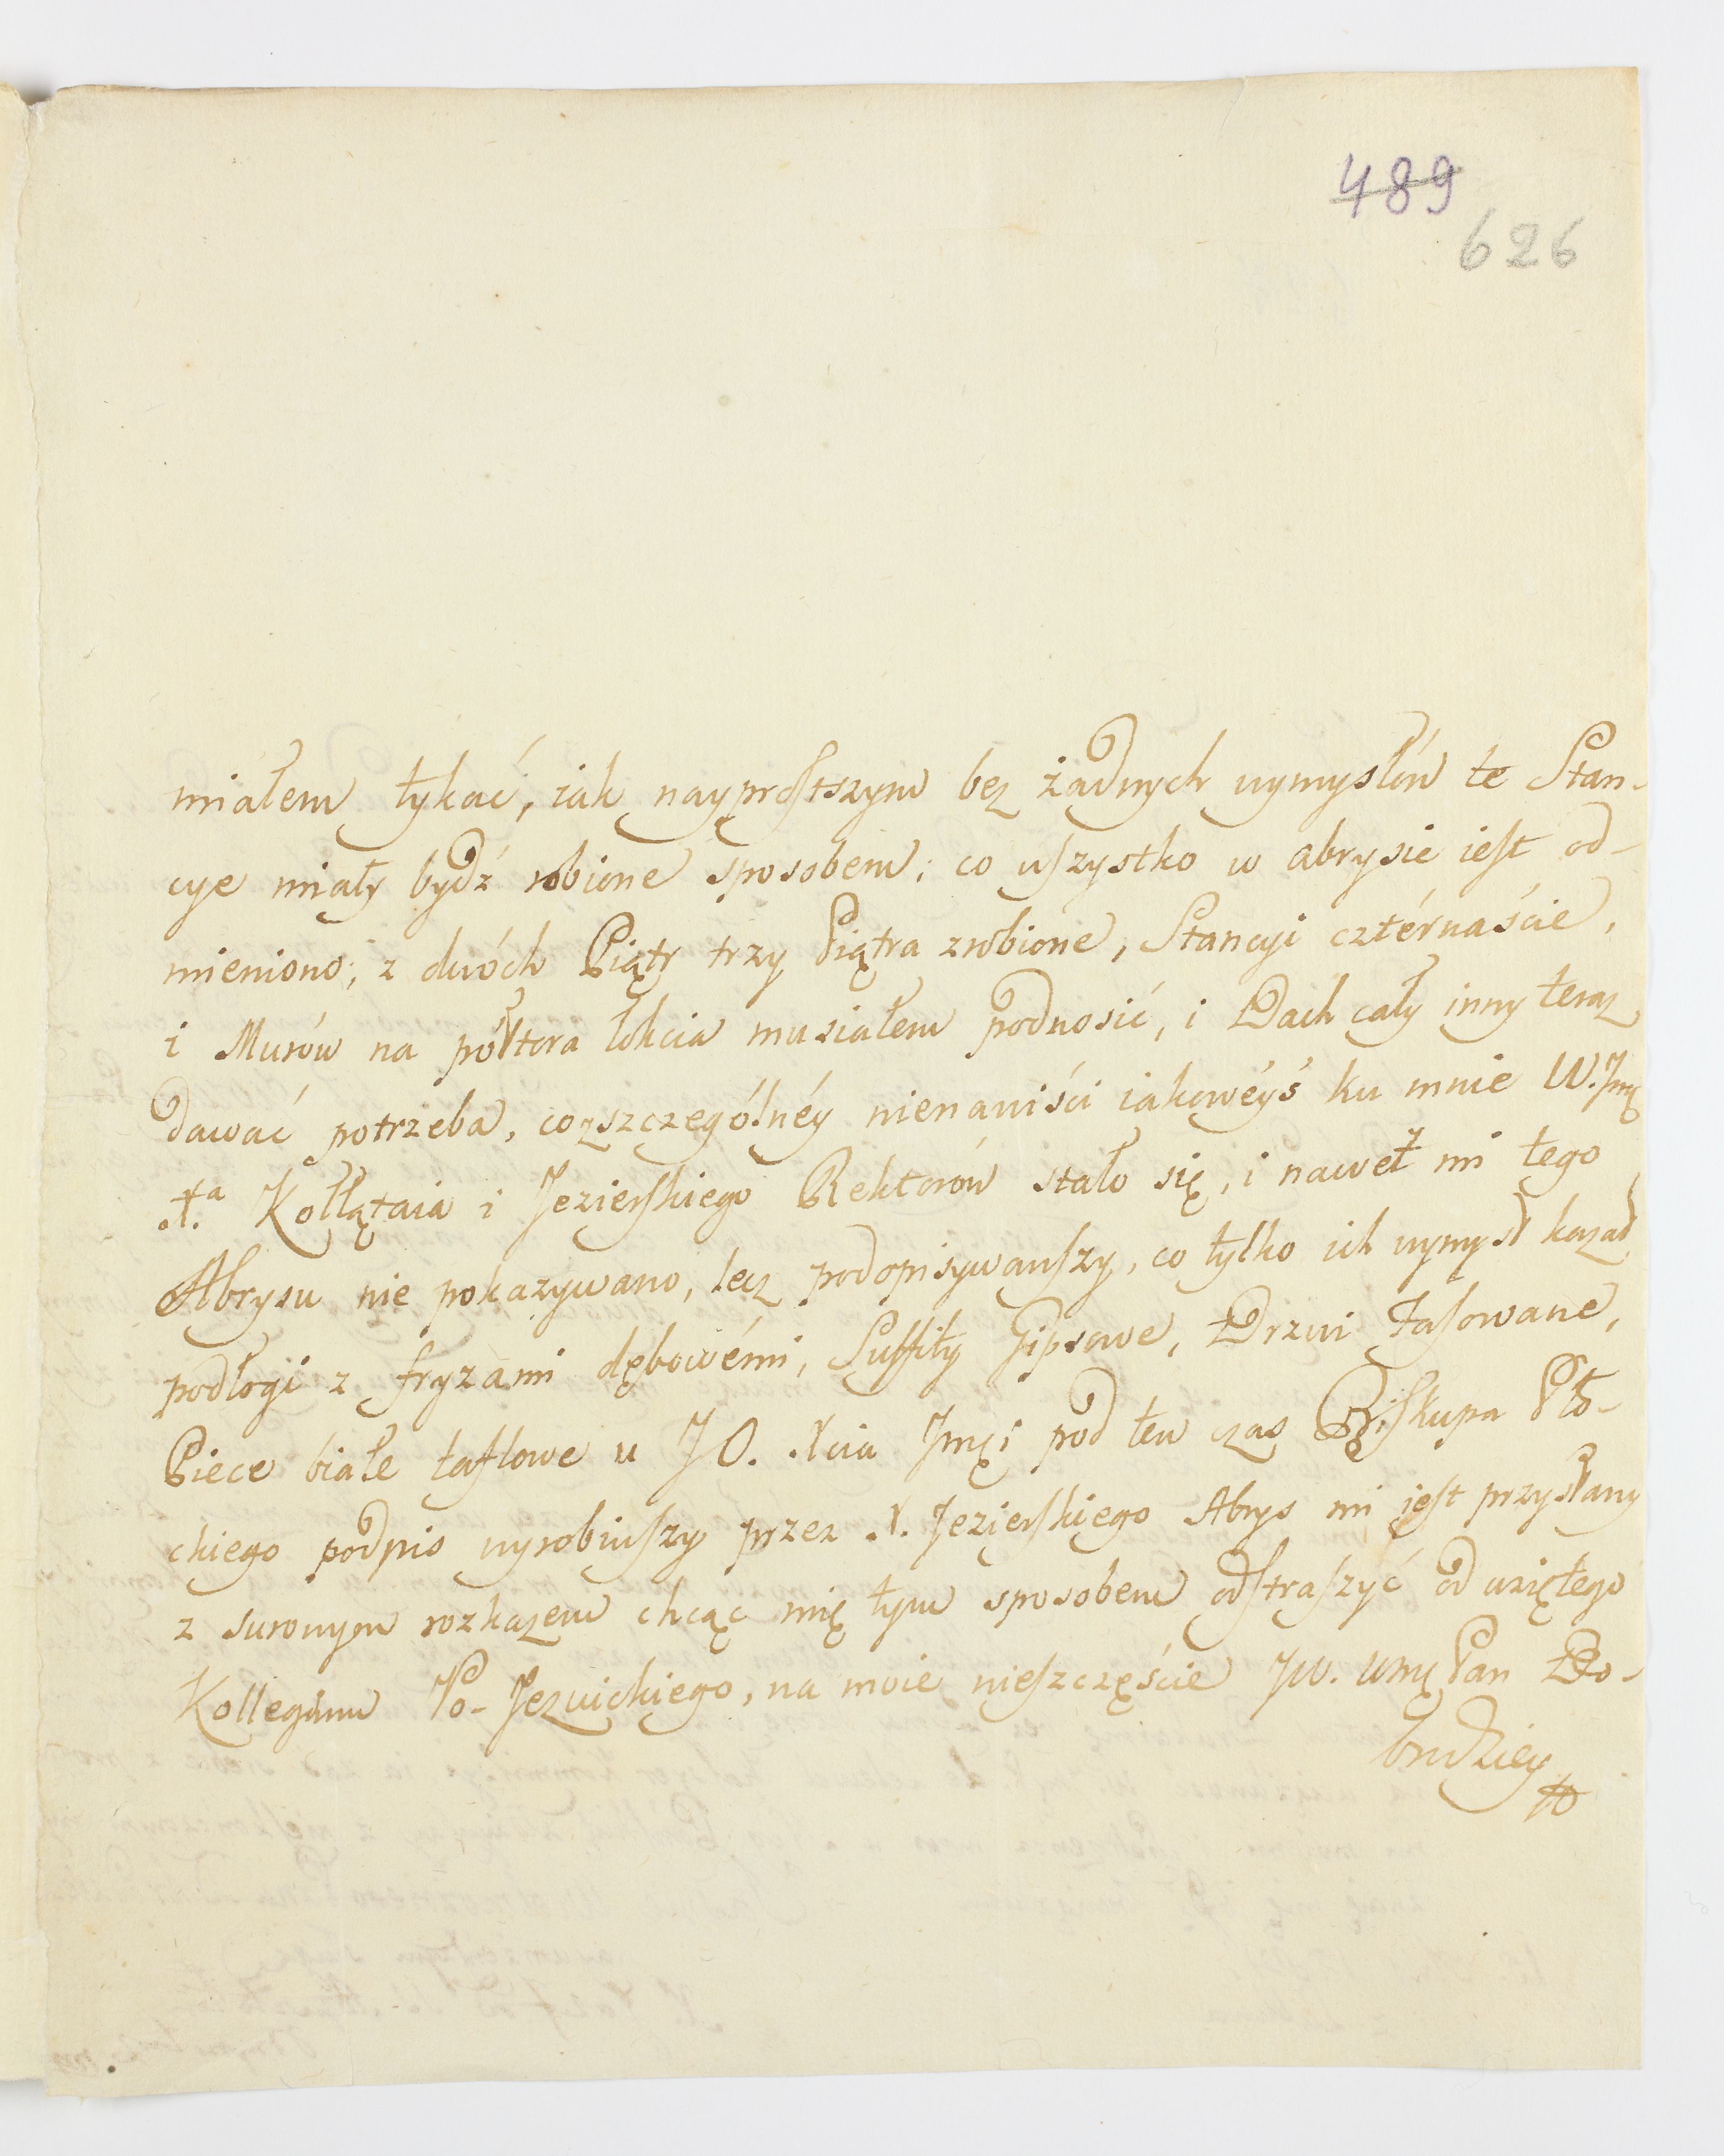 489
626
miałem tykać, iak nayprostszym bez żadnych wymysłów te Stan-
cye miały bydź robione sposobem; co wszystko w abrysie iest od-
mieniono; z dwóch Piątr trzy Piątra zrobione, Stancyi cztérnaście,
i Murów na półtora łokcia musiałem podnosić, i Dach cały inny teraz
dawać potrzeba, co z szczególnéy nienawiści iakowéyś ku mnie W. Jmę
X.a Kołłątaia i Jezierskiego Rektorów stało się, i nawet mi tego
Abrysu nie pokazywano, lecz podopisywawszy, co tylko ich wymysł kazał,
podłogi z fryzami dębowémi, Suffity Gipsowe, Drzwi Fasowane,
Piece białe taflowe u JO. Xcia Jmci pod ten czas Biskupa Pło-
ckiego podpis wyrobiwszy przez X. Jezierskiego Abrys mi jest przysłany
z surowym rozkazem chcąc mię tym sposobem odstraszyć od wziętego
Kollegium Po-Jezuickiego, na moie nieszczęście JW. Wmę Pan Do-
brodziey